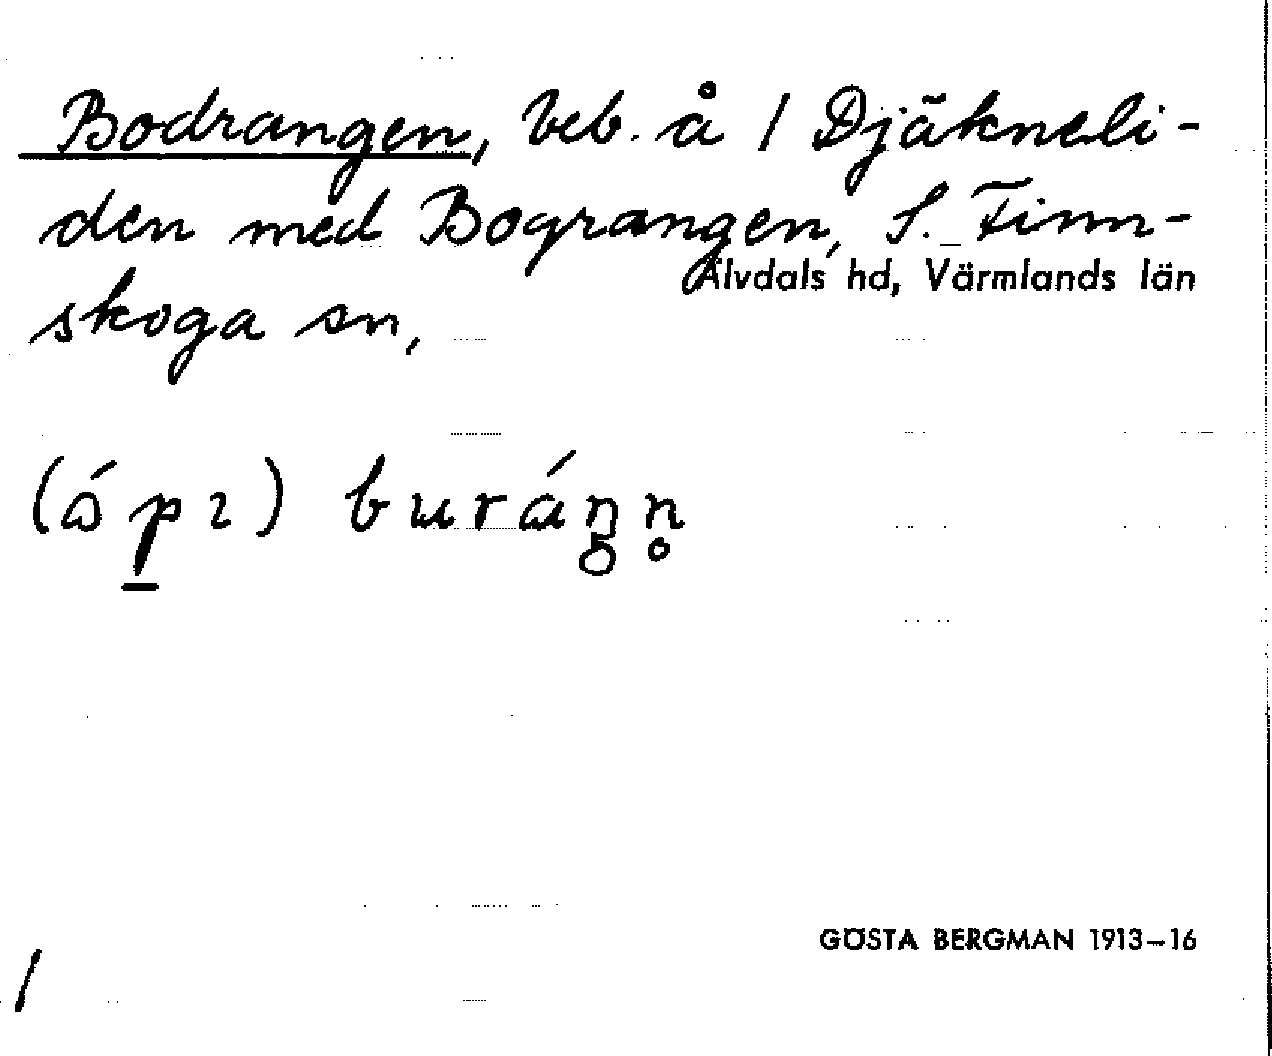 Bodrangen, beb. å 1 Djäkneli-
den med Bograngen, S. Finn-
Älvdals hd, Värmlands län
skoga sn,
(ɷ́ pɿ) buráŋn̥
GÖSTA BERGMAN 1913–16
/